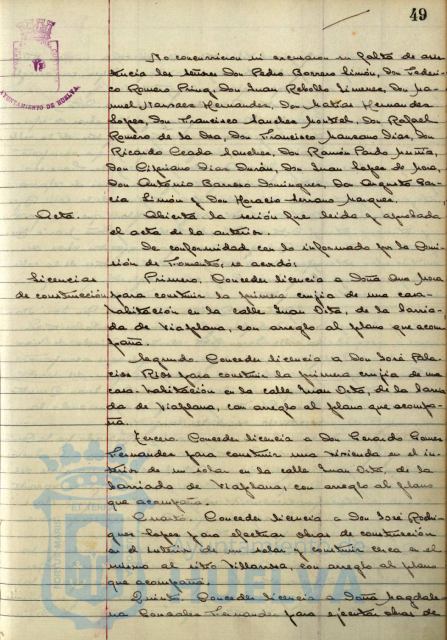 49
AYUNTAMIENTO DE HUELVA
No concurrieron ni excusaron su falta de asis-
tencia los señores Don Pedro Borrero Limón, Don Federi-
co Romero Don Juan Rebollo Jimenez, Don Ma-
nuel Narvaez Hernandez, Don Matias Hernandez
Lopez, Don Francisco Sanchez Don Rafael
Romero de la Don Francisco Manzano Dias, Don
Ricardo Sanchez, Don Ramón Pardo
Don Cipriano Dias Durán, Don Juan Lopez de
Don Antonio Barrero Dominguez, Don Augusto Gar-
cia Limón y Don Horacio Serrano Marquez.
Acta.
Abierta la sesión fue leida y aprobada
el acta de la anterior.
De conformidad con lo informado por la Comi-
sión de Fomento, se acordó:
Licencias
de construcción
Primero. Conceder licencia a Doña Ana Mora
para construir la primera crujia de una casa-
habitación en la calle Juan Oita, de la barria-
da de Viaplana, con arreglo al plano que acom-
paña.
Segundo. Conceder licencia a Don José Pala-
cios Rios para construir la primera crujia de una
casa-habitación en la calle Juan Oita, de la barria-
da de Viaplana, con arreglo al plano que acompa-
ña.
Tercero. Conceder licencia a Don Gerardo Gomez
Fernandez para construir una vivienda en el in-
terior de un solar en la calle Juan Oita, de la
barriada de Viaplana, con arreglo al plano
que acompaña.
Cuarto. Conceder licencia a Don José Rodri-
guez Lopez para efectuar obras de construcción
en el interior de un solar y construir cerca en el
mismo al sitio con arreglo al plano
que acompaña.
Quinto. Conceder licencia a Doña Magdale-
na Gonzalez Fernandez para ejecutar obras de
HUELVA